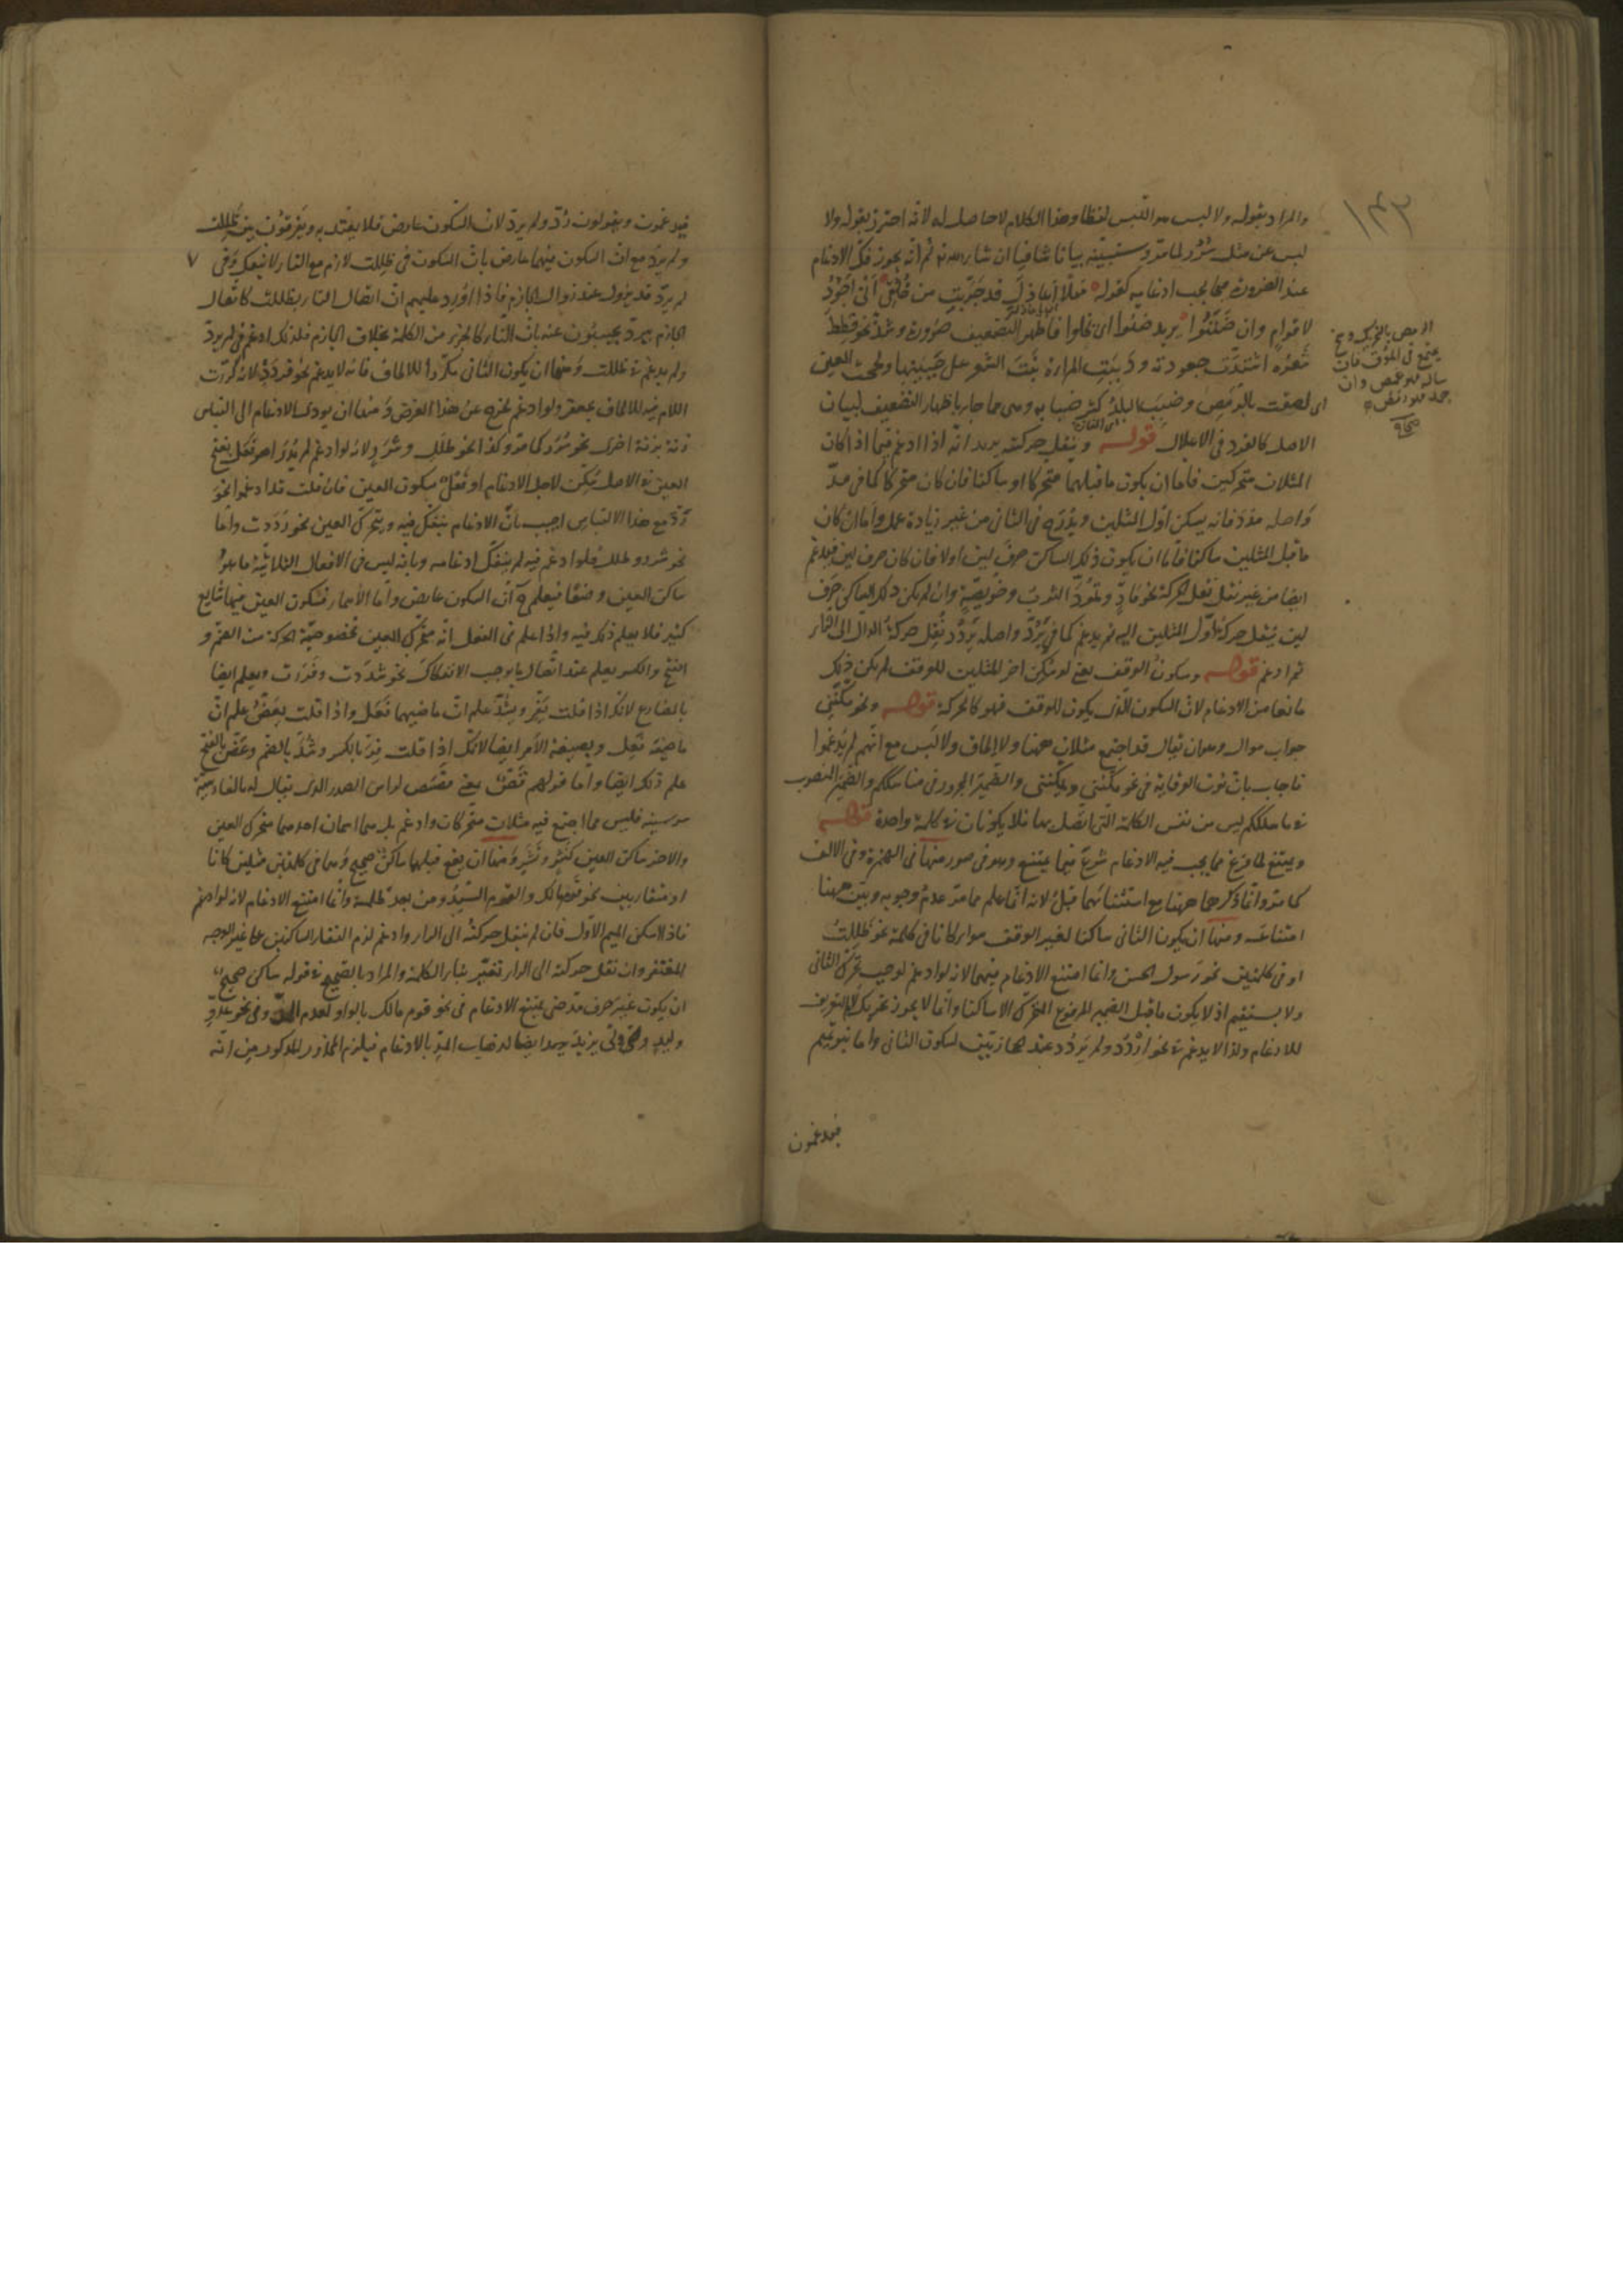 ١٤٣
والمراد بقوله ولا لبس هو اللبس لفظا وهذا الكلام لا حاصل له لأنه احترز بقوله ولا
لبس عن مثل سُرُر لما مر وسنبيّنه بيانا شافيا ان شاء الله تم ثم انه يجوز فك الادغام
عند الضرورة مما يجب ادغامه كقوله مهلا أعاذل قد جربت من خُلُقي أنّى أجود
لاقوام وان ضننوا يريد ضنوا اى بخلوا فاظهر التضعيف ضرورة وشذ نحو قطط
شعره اشتدت جعودته ودببت المرأة نبت الشعر على جبينها ولححت العين
اى لصقت بالرمص وضبب البلد كثر ضبابه وهى مما جاء باظهار التضعيف لبيان
الاصل كالقود فى الاعلال قوله وينقل حركته يريد انه اذا ادغم فيما اذا كان
المثلان متحركين فاما ان يكون ما قبلهما متحركا او ساكنا فان كان متحركا كما فى مدّ
واصله مدد فانه يسكن اول المثلين ويدرج فى الثانى من غير زيادة عمل واما ان كان
ما قبل المثلين ساكنا فاما ان يكون ذلك الساكن حرف لين اولا فان كان حرف لين فيدغم
ايضا من غير نقل الحركة نحو مادّ وتمودّ الثوب وخويصّة وان لم يكن ذلك الساكن حرف
لين ينقل حركة اول المثلين اليه ثم يدغم كما فى يردّ واصله يردد نقل حركة الدال الى الراء
ثم ادغم قوله وسكون الوقف يعنى لو سكن اخر المثلين للوقف لم يكن ذلك
مانعا من الادغام لان السكون الذى يكون للوقف فهو كالحركة قوله ونحو مكّننى
جواب سوال وهو ان يقال قد اجتمع مثلان ههنا ولا الحاق ولا لبس مع انهم لم يدغموا
فاجاب بان نون الوقاية فى نحو مكننى ويمكننى والضمير المجرور فى مناسككم والضمير المنصوب
فى ما سلككم ليس من نفس الكلمة التى اتصل بها فلا يكونان فى كلمة واحدة قوله
ويمتنع لما فرغ مما يجب فيه الادغام شرع فيما يمتنع وهو فى صور منها فى الهمزة وفى الالف
كما مر وانما ذكرهما ههنا مع استثنائهما قبل لانه انما علم مما مر عدم وجوبه وبيّن ههنا
امتناعه ومنها ان يكون الثانى ساكنا لغير الوقف سواء كانا فى كلمة نحو ظللت
او فى كلمتين نحو رسول الحسن وانما امتنع الادغام فيهما لانه لو ادغم لوجب تحرك الثانى
ولا يستقيم اذ لا يكون ما قبل الضمير المرفوع المتحرك الا ساكنا وانما لا يجوز تحريك لام التعريف
للادغام ولذا لا يدغم فى نحو اردد ولم يردد عند الحجازيين لسكون الثانى واما بنو تميم
فيدغمون
فيدغمون ويقولون ردّ ولم يردّ لان السكون عارض فلا يعتد به ويفرقون بين ظللت
ولم يردّ مع ان السكون فيهما عارض بان السكون فى ظللت لازم مع التاء لا ينفك وفى
لم يردّ قد يزول عند زوال الجازم فاذا اورد عليهم ان اتصال التاء بظللت كاتصال
الجازم بيردّ يجيبون عنه بان التاء كالجزء من الكلمة بخلاف الجازم فلذلك ادغم فى لم يردّ
ولم يدغم فى ظللت ومنها ان يكون الثانى مكررا للالحاق فانه لا يدغم نحو قردد لانه كررت
اللام فيه للالحاق بجعفر ولو ادغم لخرج عن هذا الغرض ومنها ان يودى الادغام الى التباس
زنة بزنة اخرى نحو سُرُر كما مر وكذا نحو طلل وشرر لانه لو ادغم لم يدر اهو فعل بفتح
العين فى الاصل سُكّن لاجل الادغام او فعل بسكون العين فان قلت قد ادغموا نحو
ردّ مع هذا الالتباس اجيب بان الادغام ينفك فيه ويتحرك العين نحو رددت واما
نحو شرر وطلل فلو ادغم فيه لم ينفك ادغامه وبانه ليس فى الافعال الثلاثية ما هو
ساكن العين وضعًا فيعلم ان السكون عارض واما الاسماء فسكون العين فيها شايع
كثير فلا يعلم ذلك فيه واذا علم فى الفعل انه متحرك العين فخصوصية الحركة من الضم و
الفتح والكسر يعلم عند اتصال ما يوجب الانفكاك نحو شددت وفررت ويعلم ايضا
بالمضارع لانك اذا قلت يفرّ ويشدّ علم ان ماضيهما فعل واذا قلت يعضّ علم ان
ماضيه فعِل وبصيغة الامر ايضا لانك اذا قلت فِرّ بالكسر وشُدّ بالضم وعَضّ بالفتح
علم ذلك ايضا واما قولهم قصّ بمعنى قصص لراس الصدر الذى يقال له بالفارسية
سر سينه فليس مما اجتمع فيه مثلان متحركان وادغم بل هما اسمان احدهما متحرك العين
والاخر ساكن العين كنشز ونشز ومنها ان يقع قبلهما ساكن صحيح وهما فى كلمتين مثلين كانا
او متقاربين نحو قوم مالك والقوم السيد ومن بعد ظلمه وانما امتنع الادغام لانه لو ادغم
فاذا اسكن الميم الاول فان لم ينقل حركته الى الراء وادغم لزم التقاء الساكنين على غير الوجه
المغتفر وان نقل حركته الى الراء تغير بناء الكلمة والمراد بالصحيح فى قوله ساكن صحيح
ان يكون غير حرف مد حتى يمتنع الادغام فى نحو قوم مالك بالواو لعدم المد وفى نحو عدوّ
وليد وفى ولى يزيد ايضا لذهاب المد بالادغام فيلزم المحذور المذكور من انه